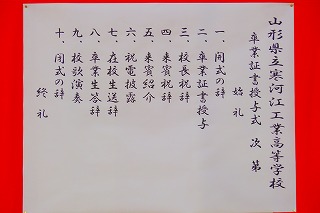 山形県立寒河江工業高等学校
卒業証書授与式 次第
始礼
一、開式の辞
二、卒業証書授与
三、校長祝辞
四、来賓祝辞
五、来賓紹介
六、祝電披露
七、在校生送辞
八、卒業生答辞
九、校歌演奏
十、閉式の辞
終礼